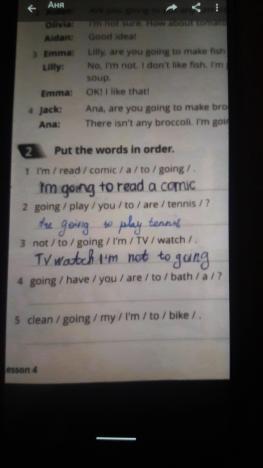 Аня
Olivia: I'm not sure. How about tomato
Aidan: Good idea!
3 Emma: Lilly, are you going to make fish
Lilly: No, I'm not. I don't like fish. I'm
soup.
Emma: OK! I like that!
4 Jack: Ana, are you going to make bro
Ana: There isn't any broccoli. I'm goi
2 Put the words in order.
1 I'm / read / comic / a / to / going / .
I'm going to read a comic
2 going / play / you / to / are / tennis / ?
going to play tennis
3 not / to / going / I'm / TV / watch / .
TV watch I'm not to going
4 going / have / you / are / to / bath / a / ?
5 clean / going / my / I'm / to / bike / .
esson 4